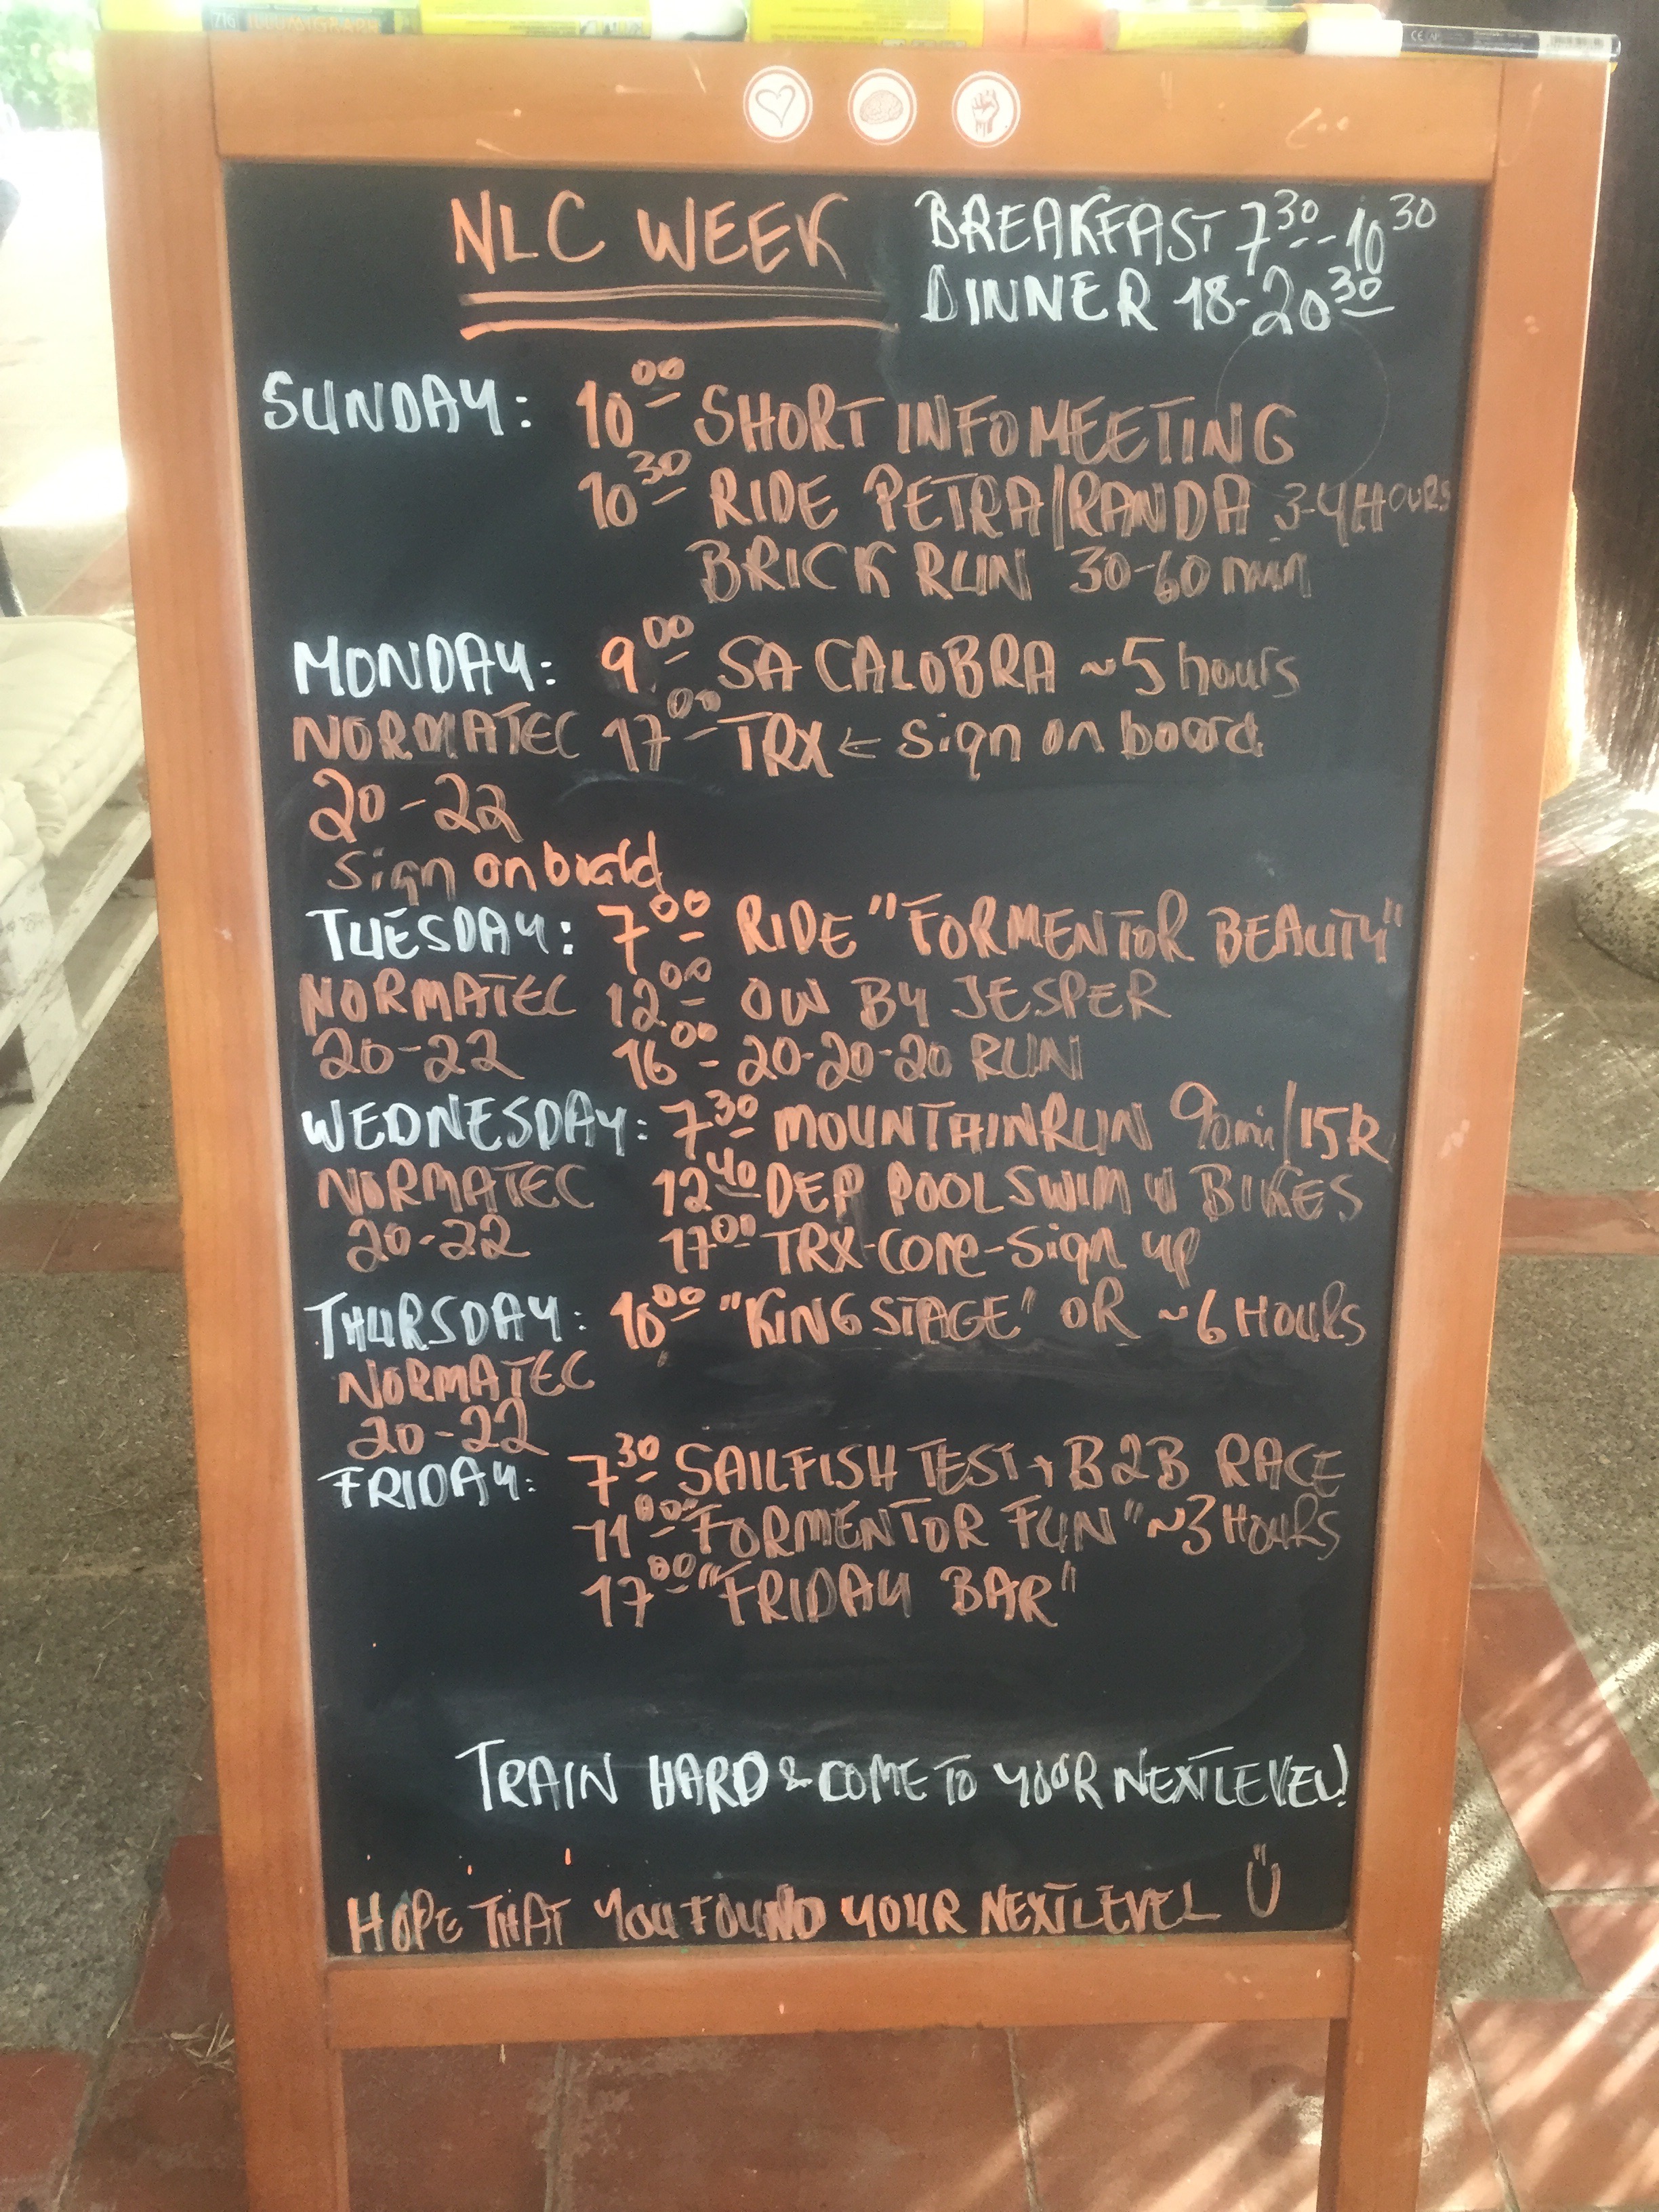 NLC WEEK
BREAKFAST 7³⁰-10³⁰
DINNER 18-20³⁰
SUNDAY: 10⁰⁰ SHORT INFOMEETING
10³⁰ RIDE PETRA/RANDA 3-4 HOURS
BRICK RUN 30-60 min
MONDAY: 9⁰⁰ SA CALOBRA ~5 hours
NORMATEC 17⁰⁰ TRX ← sign on board
20-22
sign on board
TUESDAY: 7⁰⁰ RIDE "FORMENTOR BEAUTY"
NORMATEC 12⁰⁰ OW BY JESPER
20-22 16⁰⁰- 20-20-20 RUN
WEDNESDAY: 7³⁰ MOUNTAINRUN 90min/15K
NORMATEC 12⁴⁰ DEP POOLSWIM W BIKES
20-22 17⁰⁰ TRX-core-sign up
THURSDAY: 10⁰⁰ "KING STAGE" OR ~6 HOURS
NORMATEC
20-22
FRIDAY: 7³⁰ SAILFISH TEST + B2B RACE
11⁰⁰ "FORMENTOR FUN" ~3 HOURS
17⁰⁰ "FRIDAY BAR"
TRAIN HARD & COME TO YOUR NEXTLEVEL!
HOPE THAT YOU FOUND YOUR NEXTLEVEL Ü